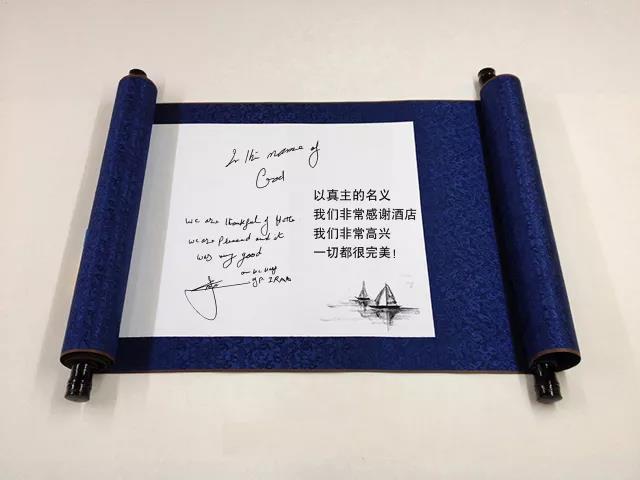 In the name of
God
we are thankful of Hotel
we are pleased and it
was very good
IRAN
以真主的名义
我们非常感谢酒店
我们非常高兴
一切都很完美!